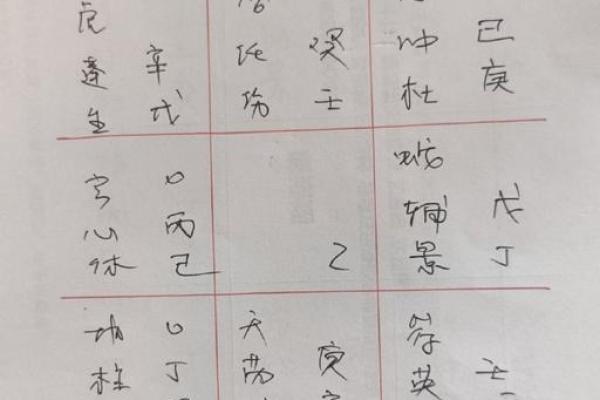 虎
蓬 辛
生 戊
任 癸
伤 壬
冲 己
杜 庚
玄 〇
心 丙
休 己
乙
蛇
辅 戊
景 丁
地 〇
柱 丁
天
芮 庚
符
英 壬